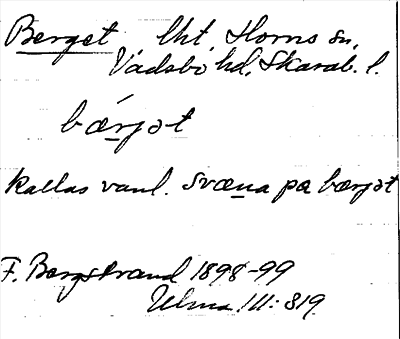 Berget lht, Horns sn,
Vadsbo hd, Skarab. l.
bǽrjət
kallas vanl. svæna pa bærjət
F. Bergstrand 1898-99
Ulma 111: 819.